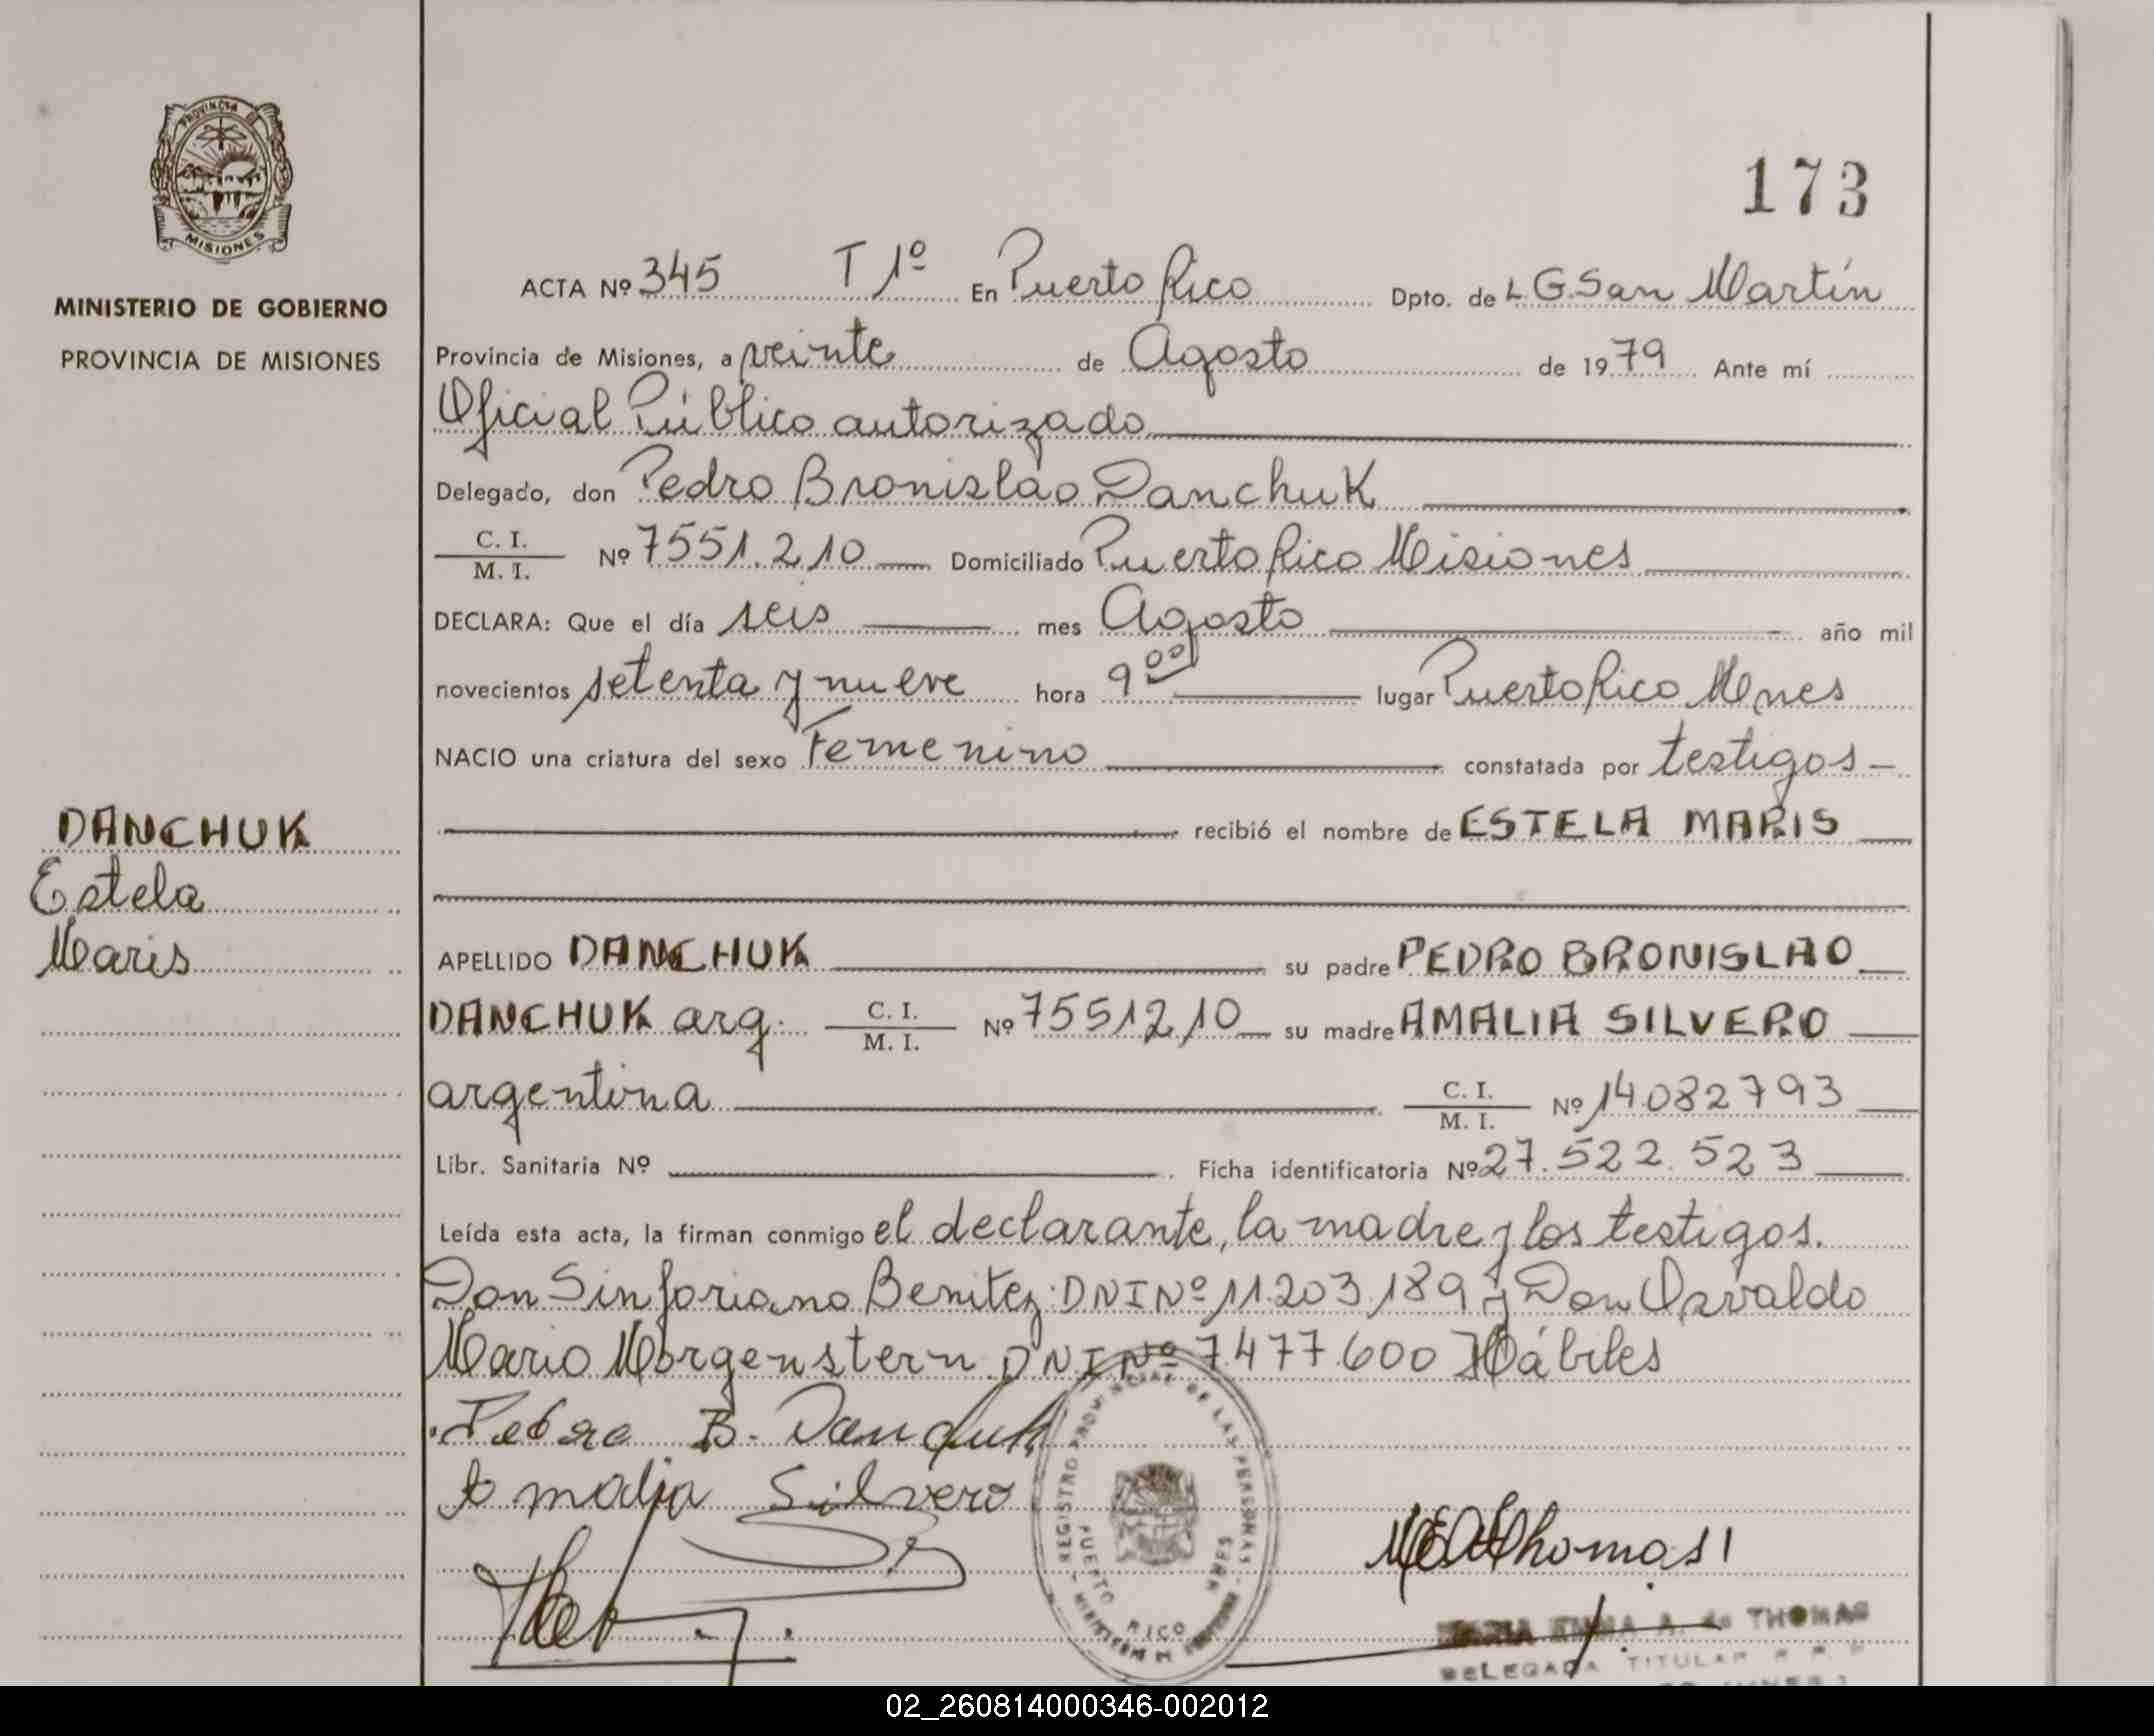 PROVINCIA
MISIONES
MINISTERIO DE GOBIERNO
PROVINCIA DE MISIONES
DANCHUK
Estela
Maris
173
ACTA Nº 345 T 1º En Puerto Rico Dpto. de L.G.San Martín
Provincia de Misiones, a veinte de Agosto de 1979 Ante mí
Oficial Público autorizado
Delegado, don Pedro Bronislao Danchuk
C. I. / M. I. Nº 7551.210 Domiciliado Puerto Rico Misiones
DECLARA: Que el día seis mes Agosto año mil
novecientos setenta y nueve hora 9 00 lugar Puerto Rico Mnes
NACIO una criatura del sexo Femenino constatada por testigos
recibió el nombre de ESTELA MARIS
APELLIDO DANCHUK su padre PEDRO BRONISLAO
DANCHUK arg. C. I. / M. I. Nº 7551210 su madre AMALIA SILVERO
argentina C. I. / M. I. Nº 14082793
Libr. Sanitaria Nº Ficha identificatoria Nº 27.522.523
Leída esta acta, la firman conmigo el declarante, la madre y los testigos.
Don Sinforiano Benitez DNI Nº 11.203.189 y Don Osvaldo
Mario Morgenstern DNI Nº 7.477.600 Hábiles
Pedro B. Danchuk
Amalia Silvero
REGISTRO PROVINCIAL DE LAS PERSONAS
PUERTO RICO MNES
MEAThomas
MARIA EMMA A. de THOMAS
DELEGADA TITULAR
02_260814000346-002012